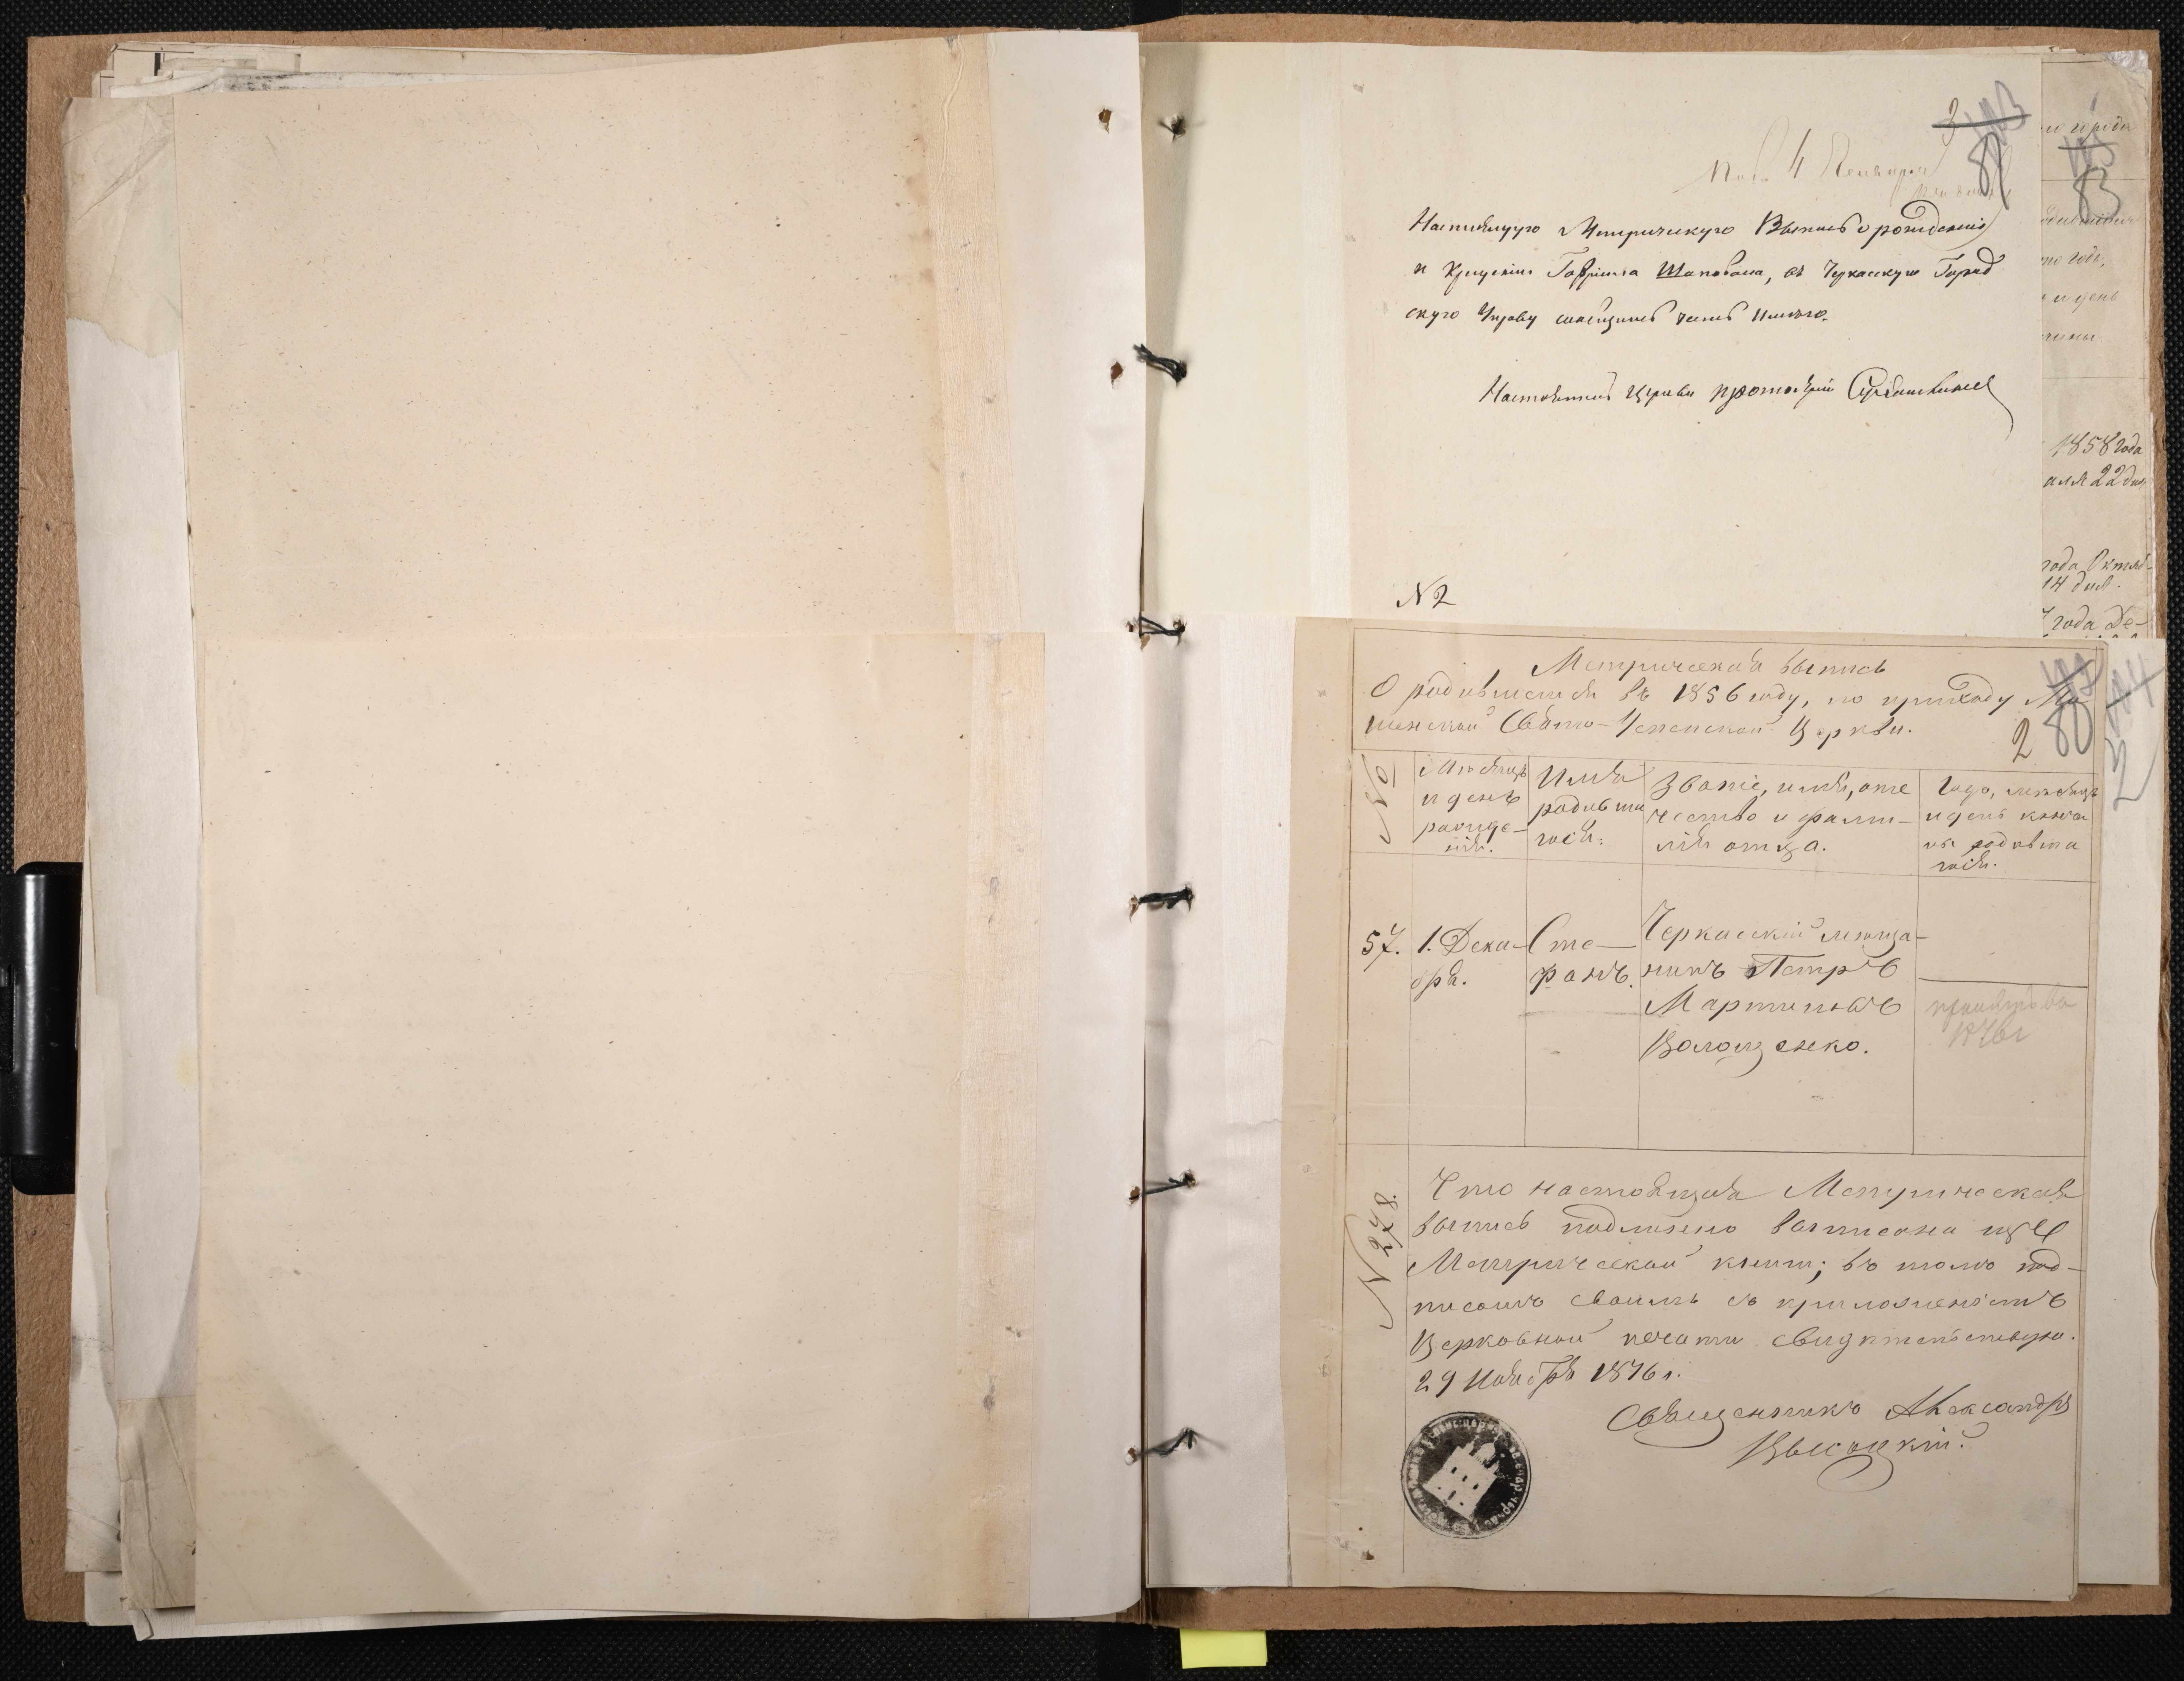 3
81
4 Января
Настоящую Метрическую Выпись о рождении
и крещении Гавриила Шаповала, въ Черкасскую Город
скую Управу сообщить честь имею.
Настоятель Церкви протоіерей
N 2
83
1858 года
22 дня
года Октяб-
14 дня.
года Де-
Метрическая выпись
О родившемся въ 1856 году, по приходу Мо
шенской Свято-Успенской Церкви.
2
80
№
Месяцъ
и день
рожде-
нія.
Имя
родивша
гося.
Званіе, имя, оте
чество и фами-
лія отца.
Годъ, месяцъ
и день кончи
ны родивша
гося.
57.
1. Дека-
бря.
Сте-
фанъ.
Черкасскій меща-
нинъ Петръ
Мартиновъ
Волощенко.
1876 г
N 278.
Что настоящая Метрическая
выпись подлинно выписана изъ
Метрической книги; въ томъ под-
писомъ своимъ съ приложеніемъ
Церковной печати свидетельствую.
29 Ноября 1876 г.
Священникъ Александръ
Высоцкій.